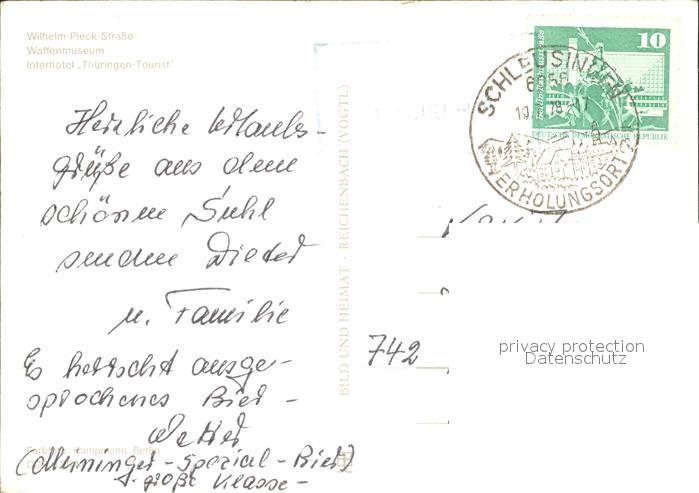 Wilhelm-Pieck-Straße
Waffenmuseum
Interhotel „Thüringen-Tourist“
Herzliche Urlaubs-
grüße aus dem
schönen Suhl
senden Dieter
u. Familie
Es herrscht ausge-
sprochenes Bier-
wetter
(Meininger-Spezial-Bier)
- große Klasse -
Farbfoto: Kampmann, Berlin
BILD UND HEIMAT · REICHENBACH (VOGTL)
742
10
DEUTSCHE DEMOKRATISCHE REPUBLIK
SCHLEUSINGEN
ERHOLUNGSORT
privacy protection
Datenschutz